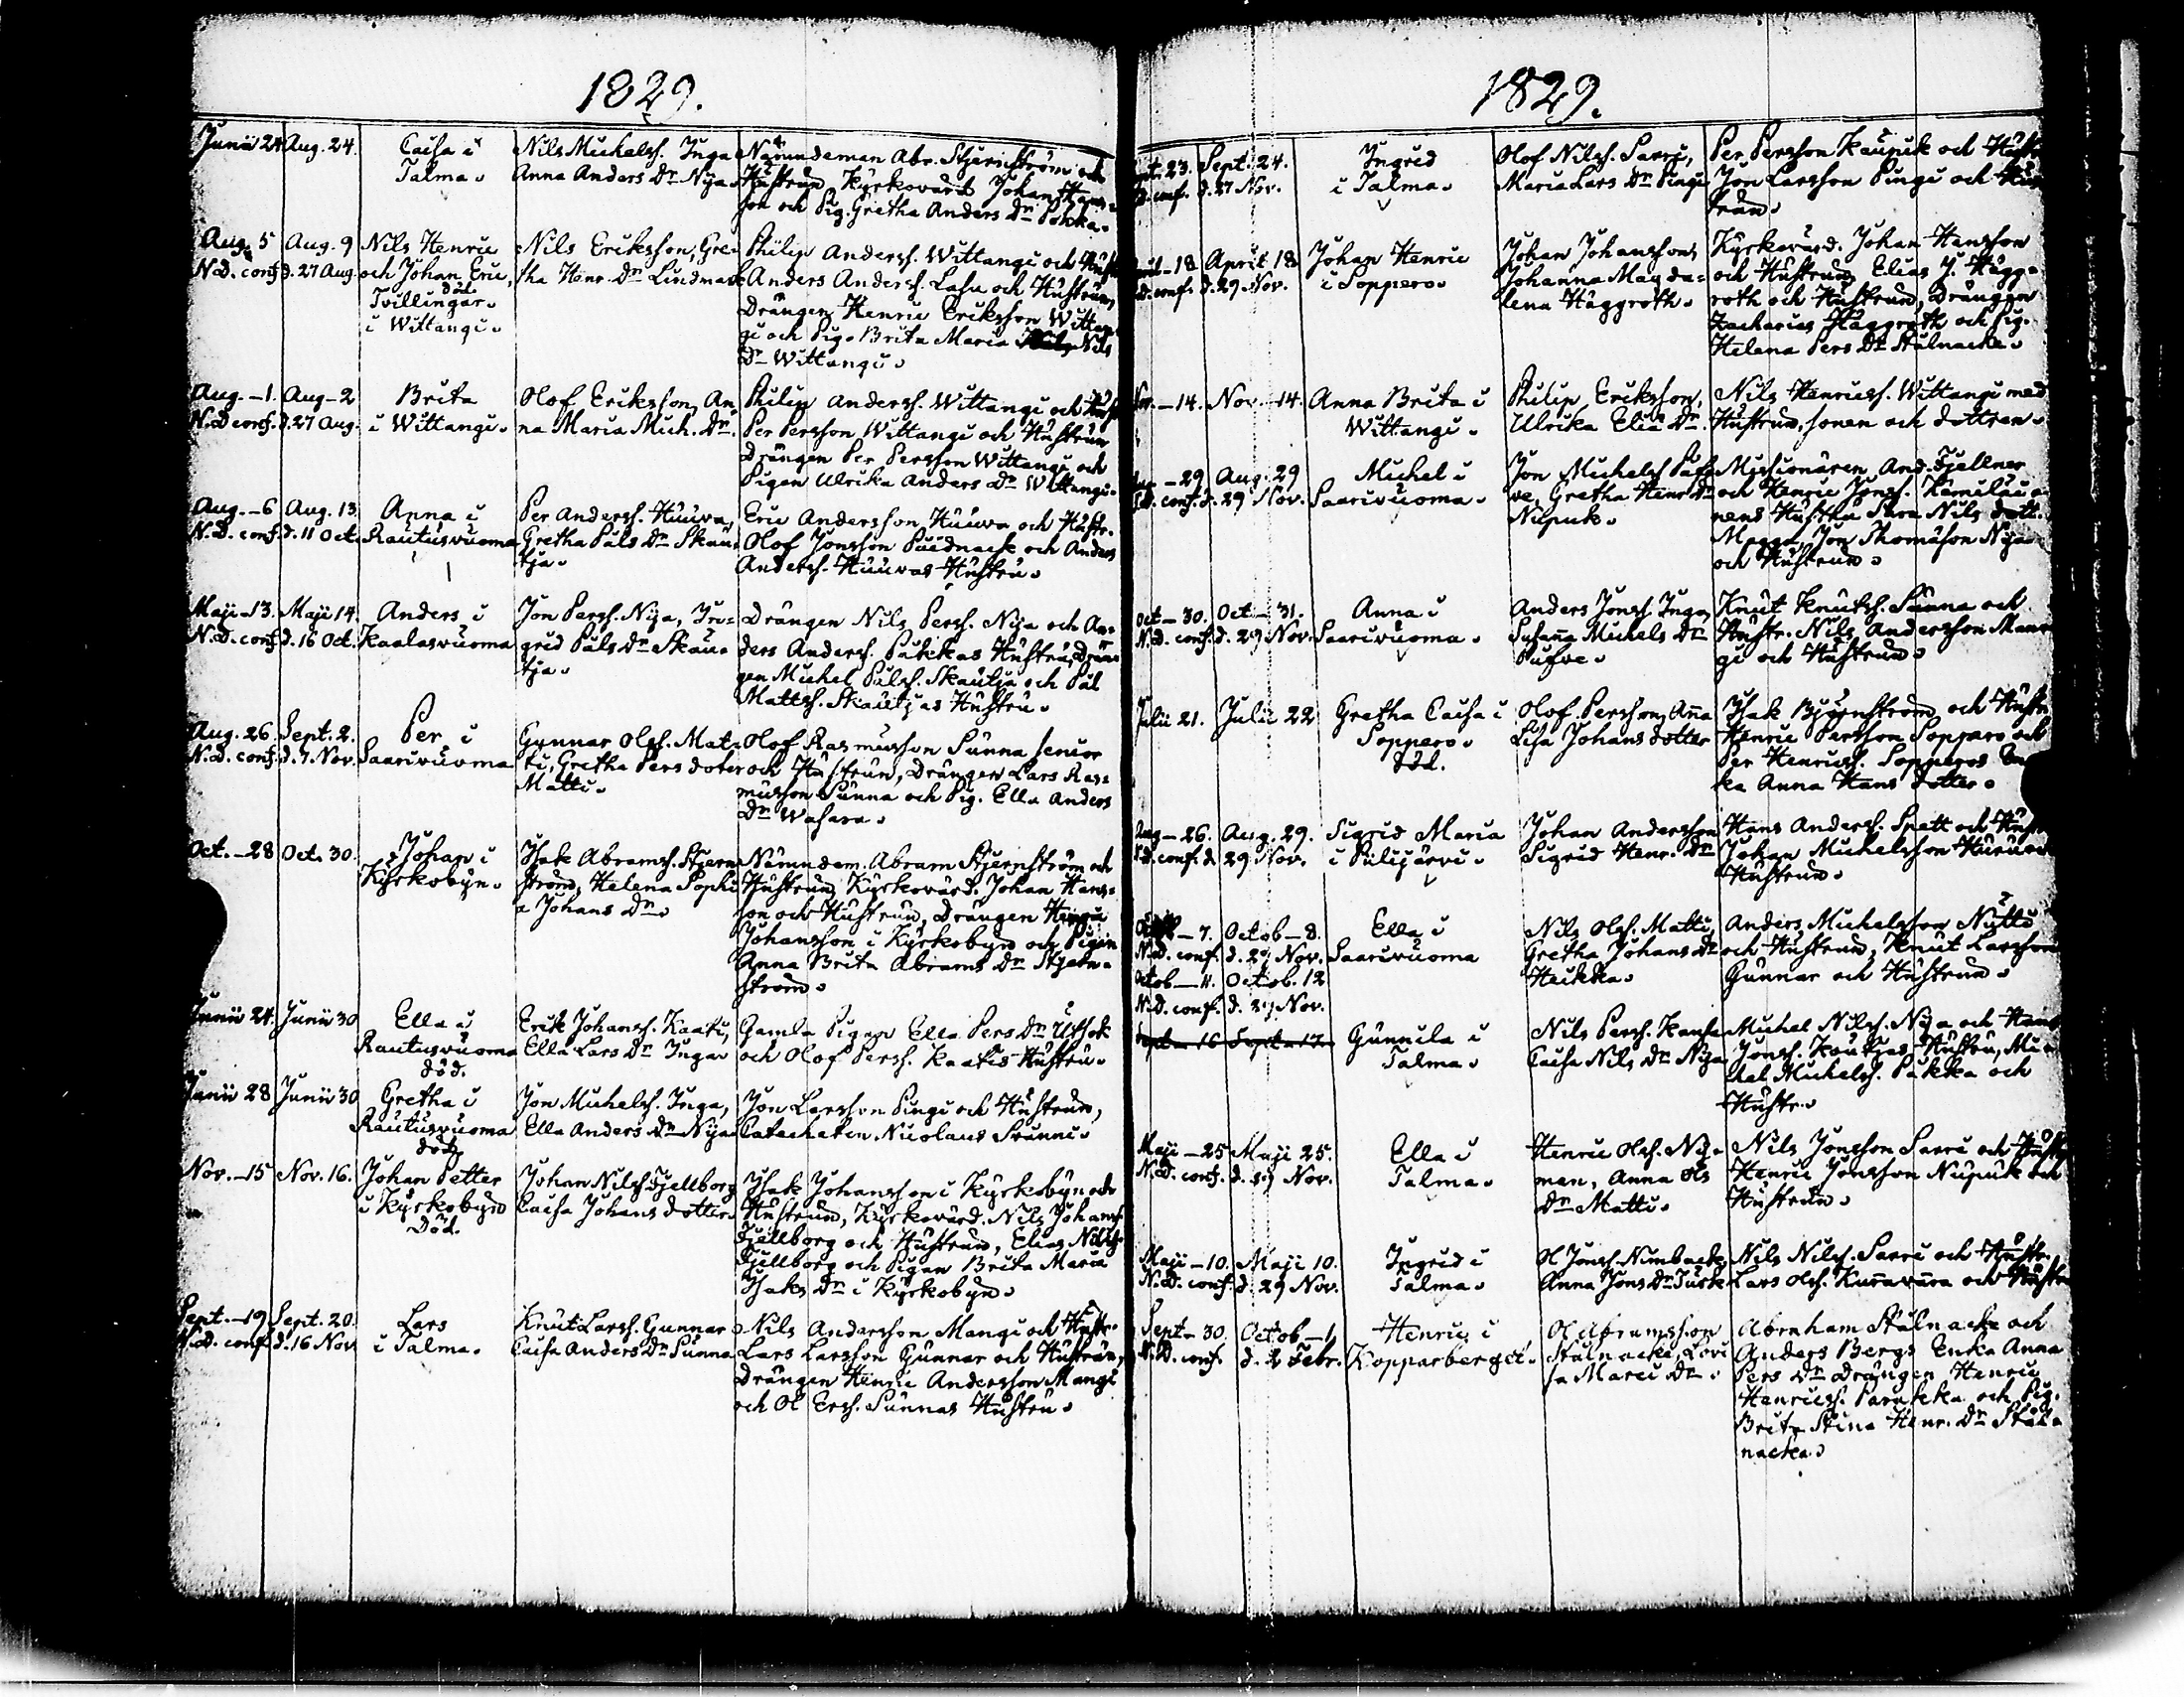 1829.
Junii 24 Aug. 24. Caisa i Nils Michelss. Inga Nämndeman Abr. Stjernström och
Talma. Anna Anders Dr. Nya. Hustrun Kyrkovärd Johan Hans-
son och Pig. Gretha Anders Dr.
Aug. 5 Aug. 9 Nils Henric Nils Eriksson, Gre- Philip Anderss. Wittangi och Hustr.
N.D. conf. d. 27 Aug. och Johan Eric, tha Henr. Dr Lindmark Anders Anderss. Lasu och Hustrun,
död
Tvillingar. Drängen Henric Eriksson Wittan-
i Wittangi. gi och Pig. Brita Maria Nils
Dr Wittangi.
Aug. - 1. Aug - 2 Brita Olof Eriksson, An- Philip Anderss. Wittangi och Hust
N.D conf. d. 27 Aug. i Wittangi. na Maria Mich. Dr. Per Persson Wittangi och Hustrun
Drängen Per Persson Wittangi och
Pigan Ulrika Anders Dr Wittangi.
Aug. - 6 Aug. 13. Anna i Per Anderss. Huuva, Eric Andersson Huuva och Hustr.
N.D. conf. d. 11 Oct. Rautusvuoma Gretha Påls Dr Skau- Olof Jonsson och Anders
tja. Anderss. Huuvas Hustru.
Maji - 13. Maji 14. Anders i Jon Perss. Nya, In- Drängen Nils Perss. Nya och An-
N.D. conf. d. 16 Oct. Kaalasvuoma grid Påls Dr Skau- ders Anderss. Pukkas Hustru, Drän-
tja. gen Michel Pålss. Skautja och Pål
Mattss. Skautjas Hustru.
Aug. 26. Sept. 2. Per i Gunnar Olss. Mat- Olof Rasmusson Sunna senior
N.D. conf. d. 7. Nov. Saarivuoma ti, Gretha Pers doter och Hustrun, Drängen Lars Ras-
Matti. musson Sunna och Pig. Ella Anders
Dr Wasara.
Oct. - 28 Oct. 30. Johan i Isak Abramss. Stjern- Nämndem. Abram Stjernström och
Kyrkobyn. ström, Helena Sophi- Hustrun, Kyrkovärd. Johan Hans-
a Johans Dr. son och Hustrun, Drängen Henric
Johansson i Kyrkobyn och Pigan
Anna Brita Abrams Dr Stjern-
ström.
Junii 24. Junii 30 Ella i Erik Johanss. Kaati, Gamla Pigan Ella Pers Dr Utsok
Rautusvuoma Ella Lars Dr Inga och Olof Perss. Kaatis Hustru.
död.
Junii 28 Junii 30 Gretha i Jon Michelss. Inga, Jon Larsson Pingi och Hustrun,
Rautusvuoma Ella Anders Dr Nya Catecheten Nicolaus
död.
Nov. - 15 Nov. 16. Johan Petter Johan Nilss Fjellborg Isak Johansson i Kyrkobyn och
i Kyrkobyn Caisa Johans dotter. Hustrun, Kyrkovärd. Nils Johanss.
Död. Fjellborg och Hustrun, Elias Nilss.
Fjellborg och Pigan Brita Maria
Isaks Dr i Kyrkobyn.
Sept. - 19 Sept. 20. Lars Knut Larss. Gunnar Nils Andersson Mangi och Hustr.
N.D. conf. d. 16 Nov i Talma. Caisa Anders Dr Sunna Lars Larsson Gunnar och Hustrun,
Drängen Henric Andersson Mangi
och Ol Erss. Sunnas Hustru.
1829.
23. Sept. 24. Ingrid Olof Nilss. Sarri, Per Persson Kaupik och Hust
conf. d. 27 Nov. i Talma. Maria Lars Dr Pingi Jon Larsson Pingi och Hus
trun.
April - 18 April 18 Johan Henric Johan Johansson, Kyrkovärd. Johan Hansson
conf. d. 29 Nov. i Soppero. Johanna Magda- och Hustrun, Elias J. Hägg-
lena Häggroth. roth och Hustrun, Drängen
Zacharias Häggroth och Pig.
Helena Pers Dr Stålnacke.
Nov. - 14. Nov. - 14. Anna Brita i Philip Eriksson, Nils Henricss. Wittangi med
Wittangi. Ulrika Eliæ Dr. Hustrun, sonen och dottren.
- 29 Aug. 29 Michel i Jon Michelss Missionären And. Fjellner
conf. d. 29 Nov. Saarivuoma. Gretha Henr Dr och Henric Jonss.
Nilpuk. Hustru Sara Nils dott.
Jon Thomæson Nya
och Hustrun.
Oct - 30. Oct - 31. Anna i Anders Jonss. Inga, Knut Knutss. Sunna och
N.D. conf. d. 29 Nov. Saarivuoma. Susanna Michels Dr Hustr. Nils Andersson Man-
gi och Hustrun.
Julii 21. Julii 22 Gretha Caisa i Olof Persson, Anna Isak Björnström och Hustr
Soppero. Lisa Johans dotter Henric Persson Soppero och
död. Per Henricss. Sopperos En
ka Anna Hans dotter.
Aug - 26. Aug. 29. Sigrid Maria Johan Andersson Hans Anderss. Spett och Hustr
conf. d 29 Nov. i Pulijärvi. Sigrid Henr. Dr Johan Michelsson
Hustrun.
- 7. Octob - 8. Ella i Nils Olss. Matti, Anders Michelsson Nutti
N.D. conf. d. 29 Nov. Saarivuoma Gretha Johans Dr och Hustrun, Knut Larsson
Octob - 11. Octob. 12 Heikka. Gunnar och Hustrun.
N.D. conf. d. 29 Nov.
Septbr 16 Sept. 17. Gunnila i Nils Perss. Michel Nilss. Nya och Hans
Talma. Caisa Nils Dr Nya Jonss. Hustru, Mi-
chel Michelss. Pukka och
Hustr.
Maji - 25 Maji 25. Ella i Henric Olss. Ny- Nils Jonsson Sarri och Hustr
N.D. conf. d. 29 Nov. Talma. man, Anna Ols Henric Jonsson Nilpuk och
Dr Matti. Hustrun.
Maji - 10. Maji 10. Ingrid i Ol Jonss. Nilss. Sarri och Hustr.
N.D. conf. d. 29 Nov. Talma. Anna Jons Dr Lars Olss. Kurravara och Hustr
Sept - 30. Octob - 1 Henric i Ol Abramsson Abraham Stålnacke och
N.D. conf. d. 2 Febr. Kopparberget. Stålnacke, Lovi- Anders Bergs Enka Anna
sa Marci Dr. Pers Dr Drängen Henric
Henricss. Parakka och Pig.
Brita Stina Henr. Dr Stål-
nacka.